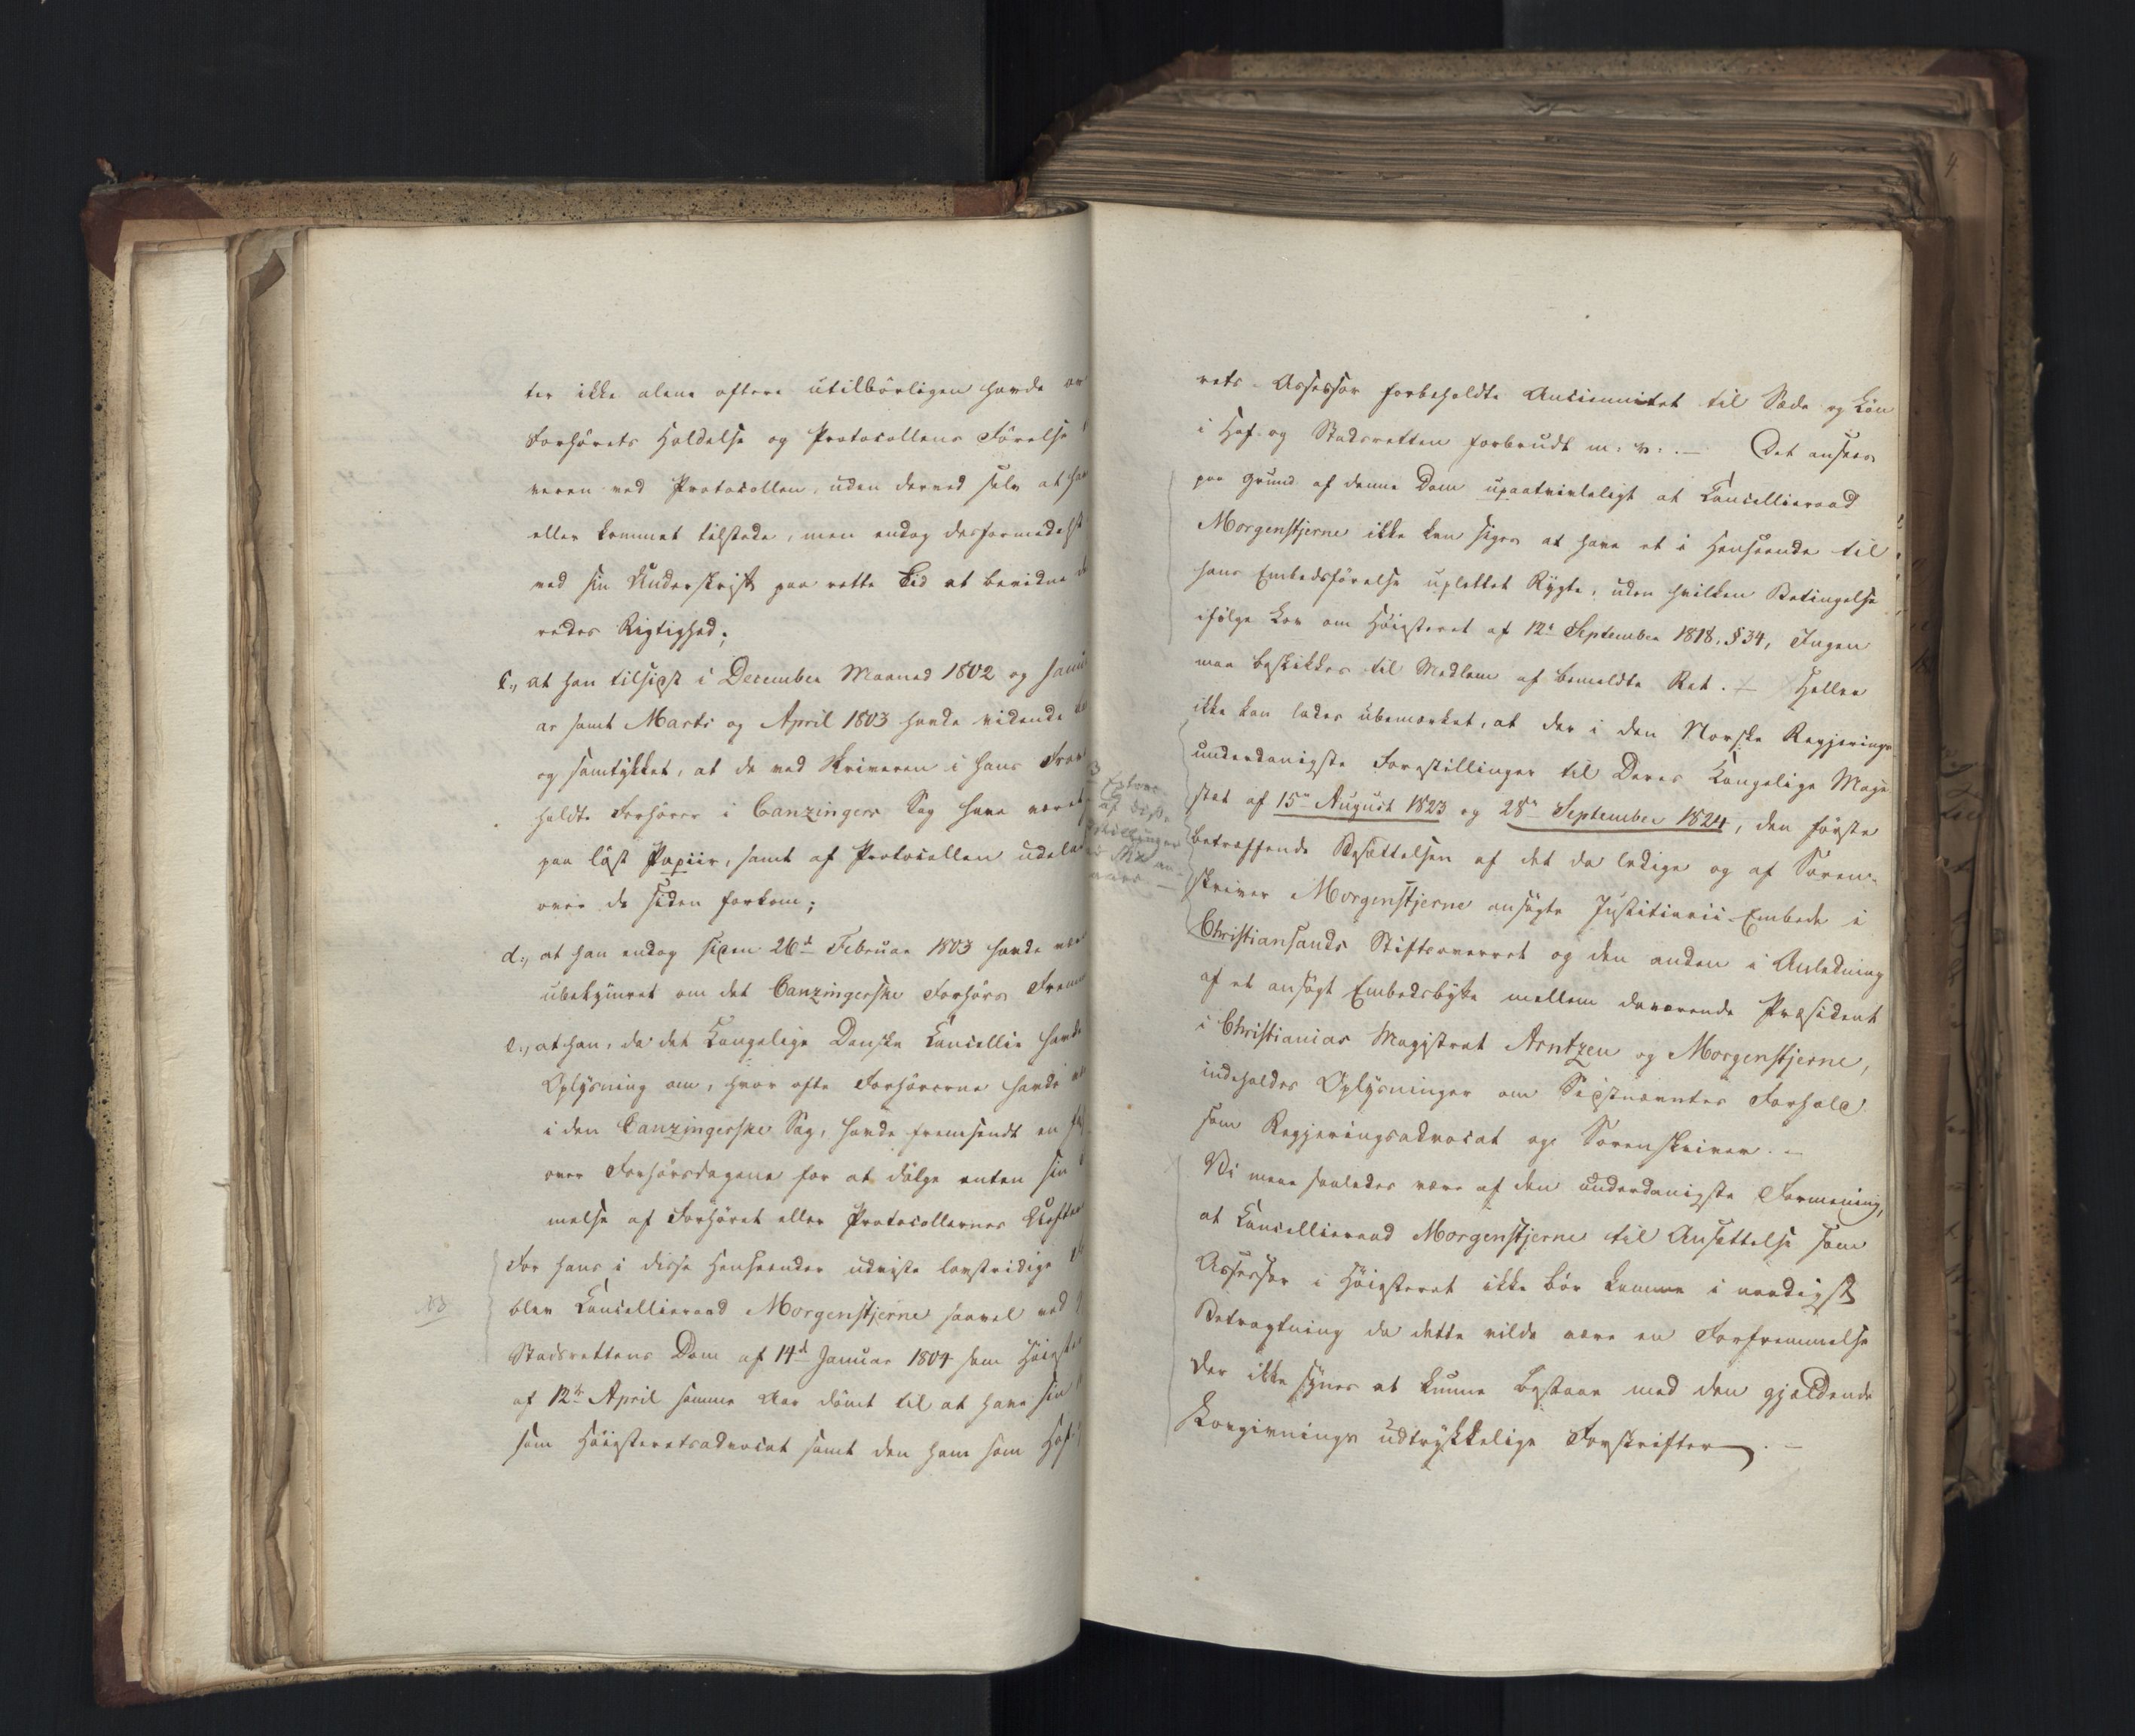 ter ikke alene oftere utilbörligen havde
Forhörets Holdelse og Protocollens Förelse
veren ved Protocollen, uden derved selv at
eller kommet tilstede, men endog desformedelst
ved sin Underskrift paa rette Tid at bevidne
redes Rigtighed;
c., at han tilsidst i December Maaned 1802 og Janu
ar samt Marts og April 1803 havde vidende
og samtykket, at de ved Skriveren i hans
holdte Forhörer i Canzingers Sag have været
paa löst Papiir, samt af Protocollen
over de siden forkom;
d., at han endog siden 26d Februar 1803 havde
ubekymret om det Canzingerske Forhörs
e., at han, da det Kongelige Danske Cancellie havde
Oplysning om, hvor ofte Forhörerne havde
i den Canzingerske Sag, havde fremsendt en
over Forhörsdagene for at dölge enten sin
melse af Forhöret eller Protocollernes
For hans i disse Henseender udviste lovstridige
NB
blev Cancellieraad Morgenstjerne saavel ved
Stadsrettens Dom af 14d Januar 1804 som
af 12te April samme Aar dömt til at have sin
som Höiesteretsadvocat samt den ham som Hof-
rets-Assessor forbeholdte Anciennitet til Sæde og Lön
i Hof- og Stadsretten forbrudt m: v: . — Det ansees
paa Grund af denne Dom upaatvivleligt at Cancellieraad
Morgenstjerne ikke kan siges at have et i Henseende til
hans Embedsförelse uplettet Rygte, uden hvilken Betingelse
ifölge Lov om Höiesteret af 12te September 1818, §34, Ingen
maa beskikkes til Medlem af bemeldte Ret. — Heller
ikke kan lades ubemærket, at der i den Norske Regjerings
underdanigste Forestillinger til Deres Kongelige Maje-
stæt af 15de August 1823 og 28de September 1824, den förste
betræffende Besættelsen af det da ledige og af Soren-
skriver Morgenstjerne ansögte Justitiarii-Embede i
Christiansands Stiftsoverret og den anden i Anledning
af et ansögt Embedsbytte mellem daværende Præsident
i Christianias Magistrat Arntzen og Morgenstjerne,
indeholdes Oplysninger om Sidstnævntes Forhold
som Regjeringsadvocat og Sorenskriver. —
Vi maae saaledes være af den underdanigste Formening,
at Cancellieraad Morgenstjerne til Ansættelse som
Assessor i Höiesteret ikke bör komme i naadigst
Betragtning da dette vilde være en Forfremmelse
der ikke synes at kunne bestaae med den gjældende
Lovgivnings udtrykkelige Forskrifter. —